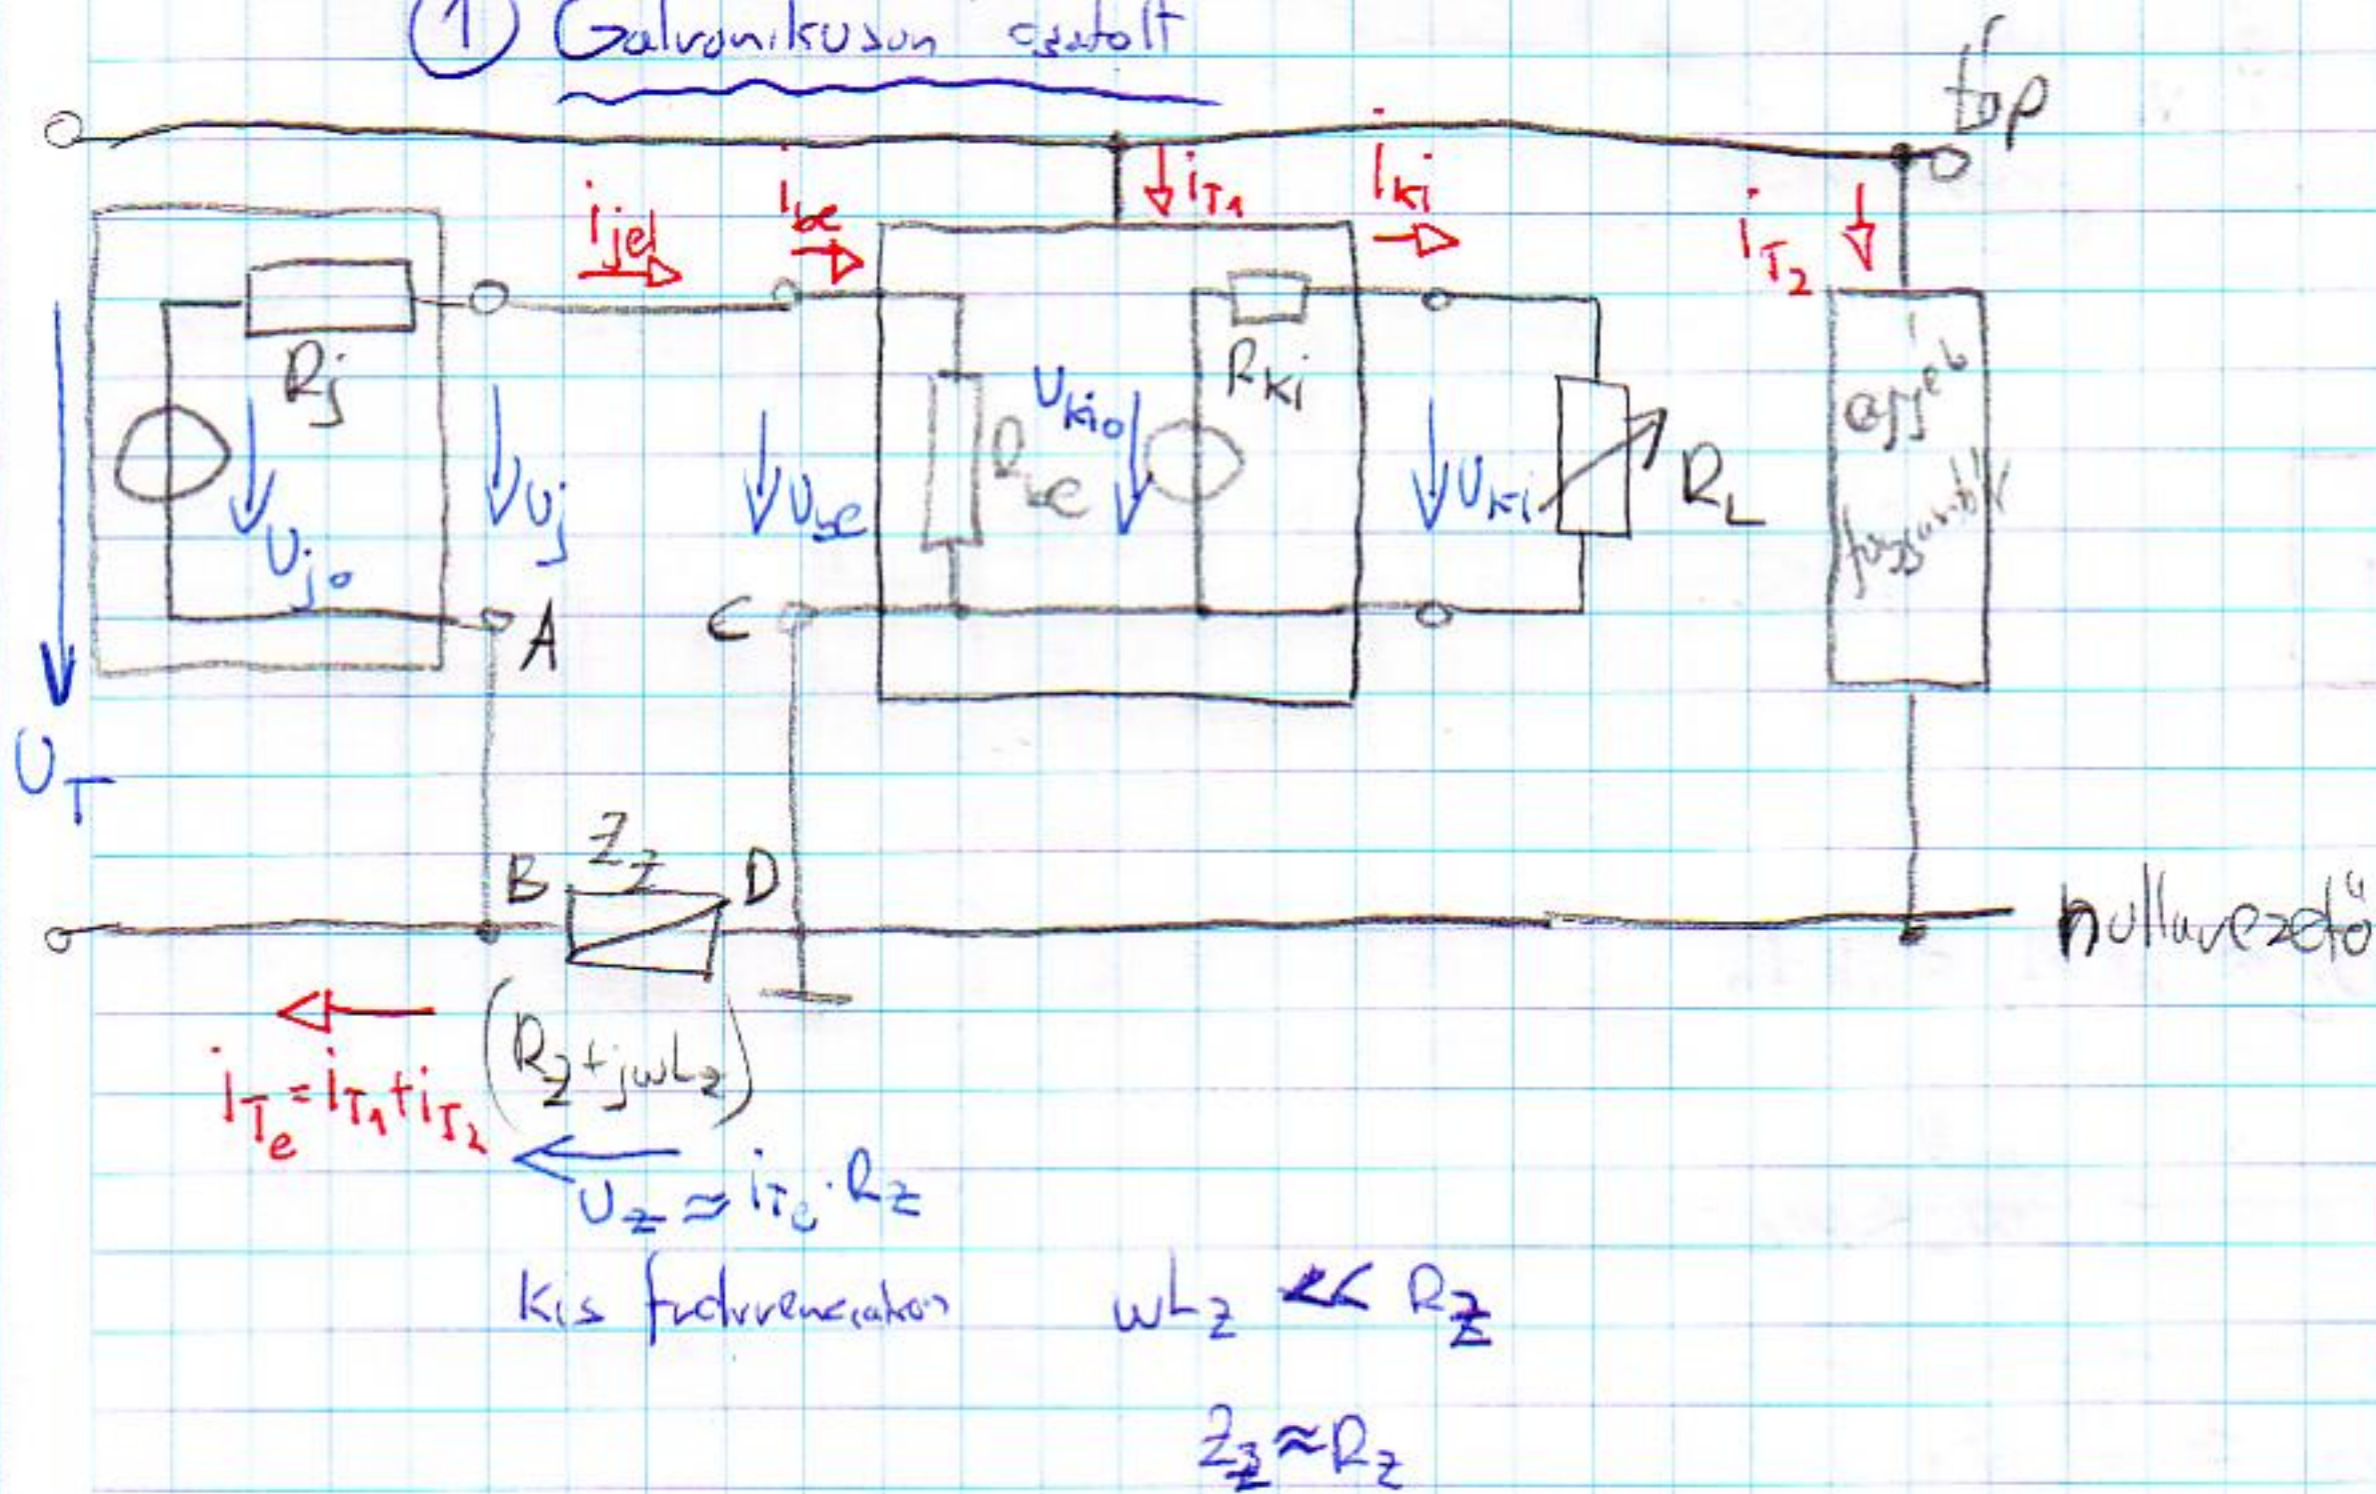 ① Galvanikusan csatolt
táp
i_jel
i_be
i_T1
i_ki
i_T2
R_j
U_j0
U_j
U_be
R_be
U_ki0
R_ki
U_ki
R_L
egyéb
A
C
U_T
B
Z_Z
D
nullavezető
i_Te = i_T1 + i_T2
(R_Z + jωL_Z)
U_Z ≈ i_Te · R_Z
Kis frekvenciákon
ωL_Z << R_Z
Z_Z ≈ R_Z